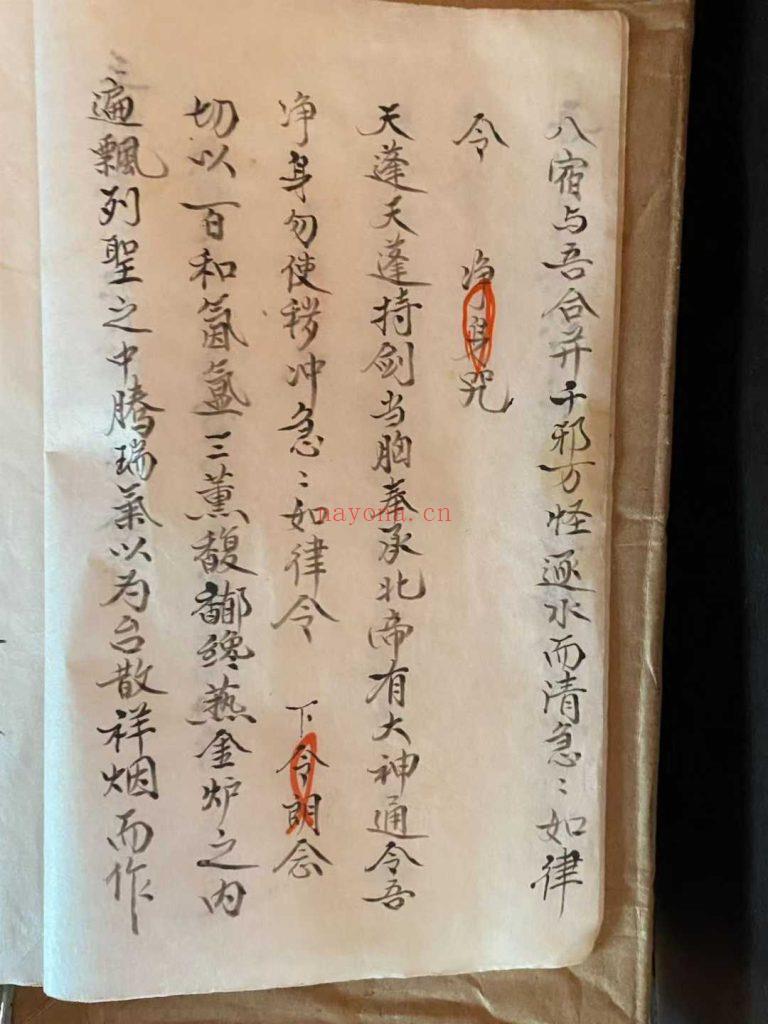 八宿与吾合并千邪万怪逐水而清急〻如律
令　净身咒
天蓬天蓬持剑当胸奉承北帝有大神通令吾
净身勿使秽冲急〻如律令　下令朗念
切以百和氤氲三薰馥郁纔爇金炉之内
遍飘列聖之中腾瑞氣以为台散祥烟而作
nayona.cn